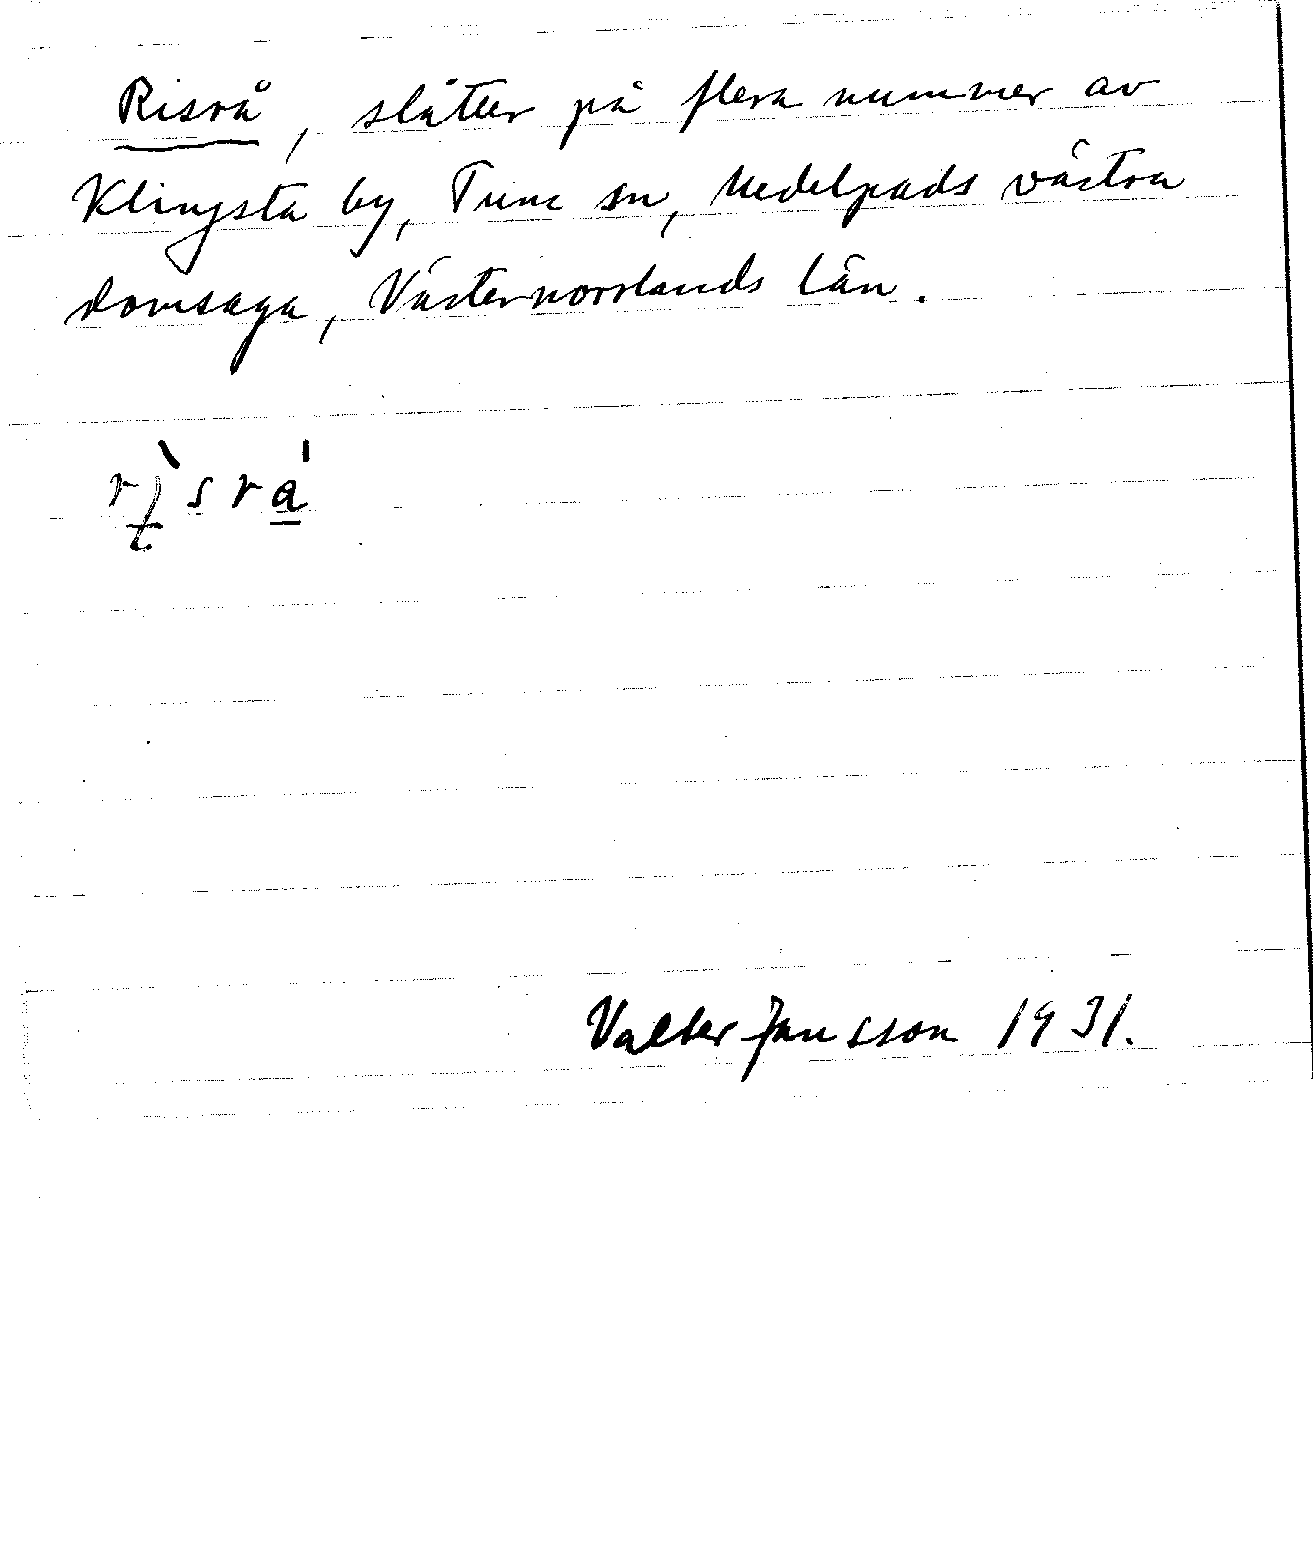 Risrå, slåtter på flera nummer av
Klingsta by, Tuna sn, Medelpads västra
domsaga, Västernorrlands län.
Valter Jansson 1931.